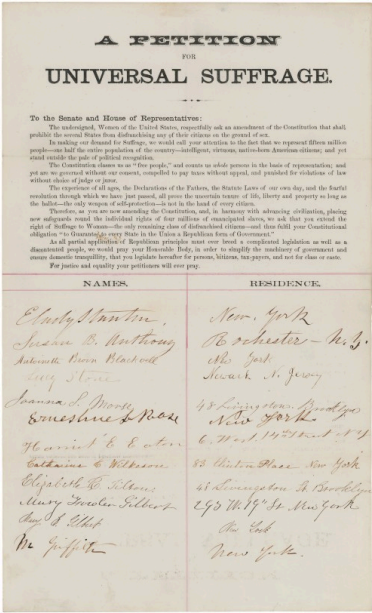 A PETITION
FOR
UNIVERSAL SUFFRAGE.
To the Senate and House of Representatives:
The undersigned, Women of the United States, respectfully ask an amendment of the Constitution that shall
prohibit the several States from disfranchising any of their citizens on the ground of sex.
In making our demand for Suffrage, we would call your attention to the fact that we represent fifteen million
people—one half the entire population of the country—intelligent, virtuous, native-born American citizens; and yet
stand outside the pale of political recognition.
The Constitution classes us as "free people," and counts us whole persons in the basis of representation; and
yet are we governed without our consent, compelled to pay taxes without appeal, and punished for violations of law
without choice of judge or juror.
The experience of all ages, the Declarations of the Fathers, the Statute Laws of our own day, and the fearful
revolution through which we have just passed, all prove the uncertain tenure of life, liberty and property so long as
the ballot—the only weapon of self-protection—is not in the hand of every citizen.
Therefore, as you are now amending the Constitution, and, in harmony with advancing civilization, placing
new safeguards round the individual rights of four millions of emancipated slaves, we ask that you extend the
right of Suffrage to Woman—the only remaining class of disfranchised citizens—and thus fulfil your Constitutional
obligation "to Guarantee to every State in the Union a Republican form of Government."
As all partial application of Republican principles must ever breed a complicated legislation as well as a
discontented people, we would pray your Honorable Body, in order to simplify the machinery of government and
ensure domestic tranquility, that you legislate hereafter for persons, citizens, tax-payers, and not for class or caste.
For justice and equality your petitioners will ever pray.
NAMES. RESIDENCE.
E Cady Stanton, New York
Susan B. Anthony Rochester - N.Y.
Antoinette Brown Blackwell New York
Lucy Stone Newark N. Jersey
Joanna S. Morse 48 Livingston. Brooklyn
Ernestine L Rose New York
Harriet E. Eaton 6. West. 14th Street N.Y
Catharine C Wilkeson 83 Clinton Place New York
Elizabeth R. Tilton 48 Livingston St. Brooklyn
Mary Fowler Gilbert 293 W. 19th St New York
Gilbert New York
M Griffith New York.